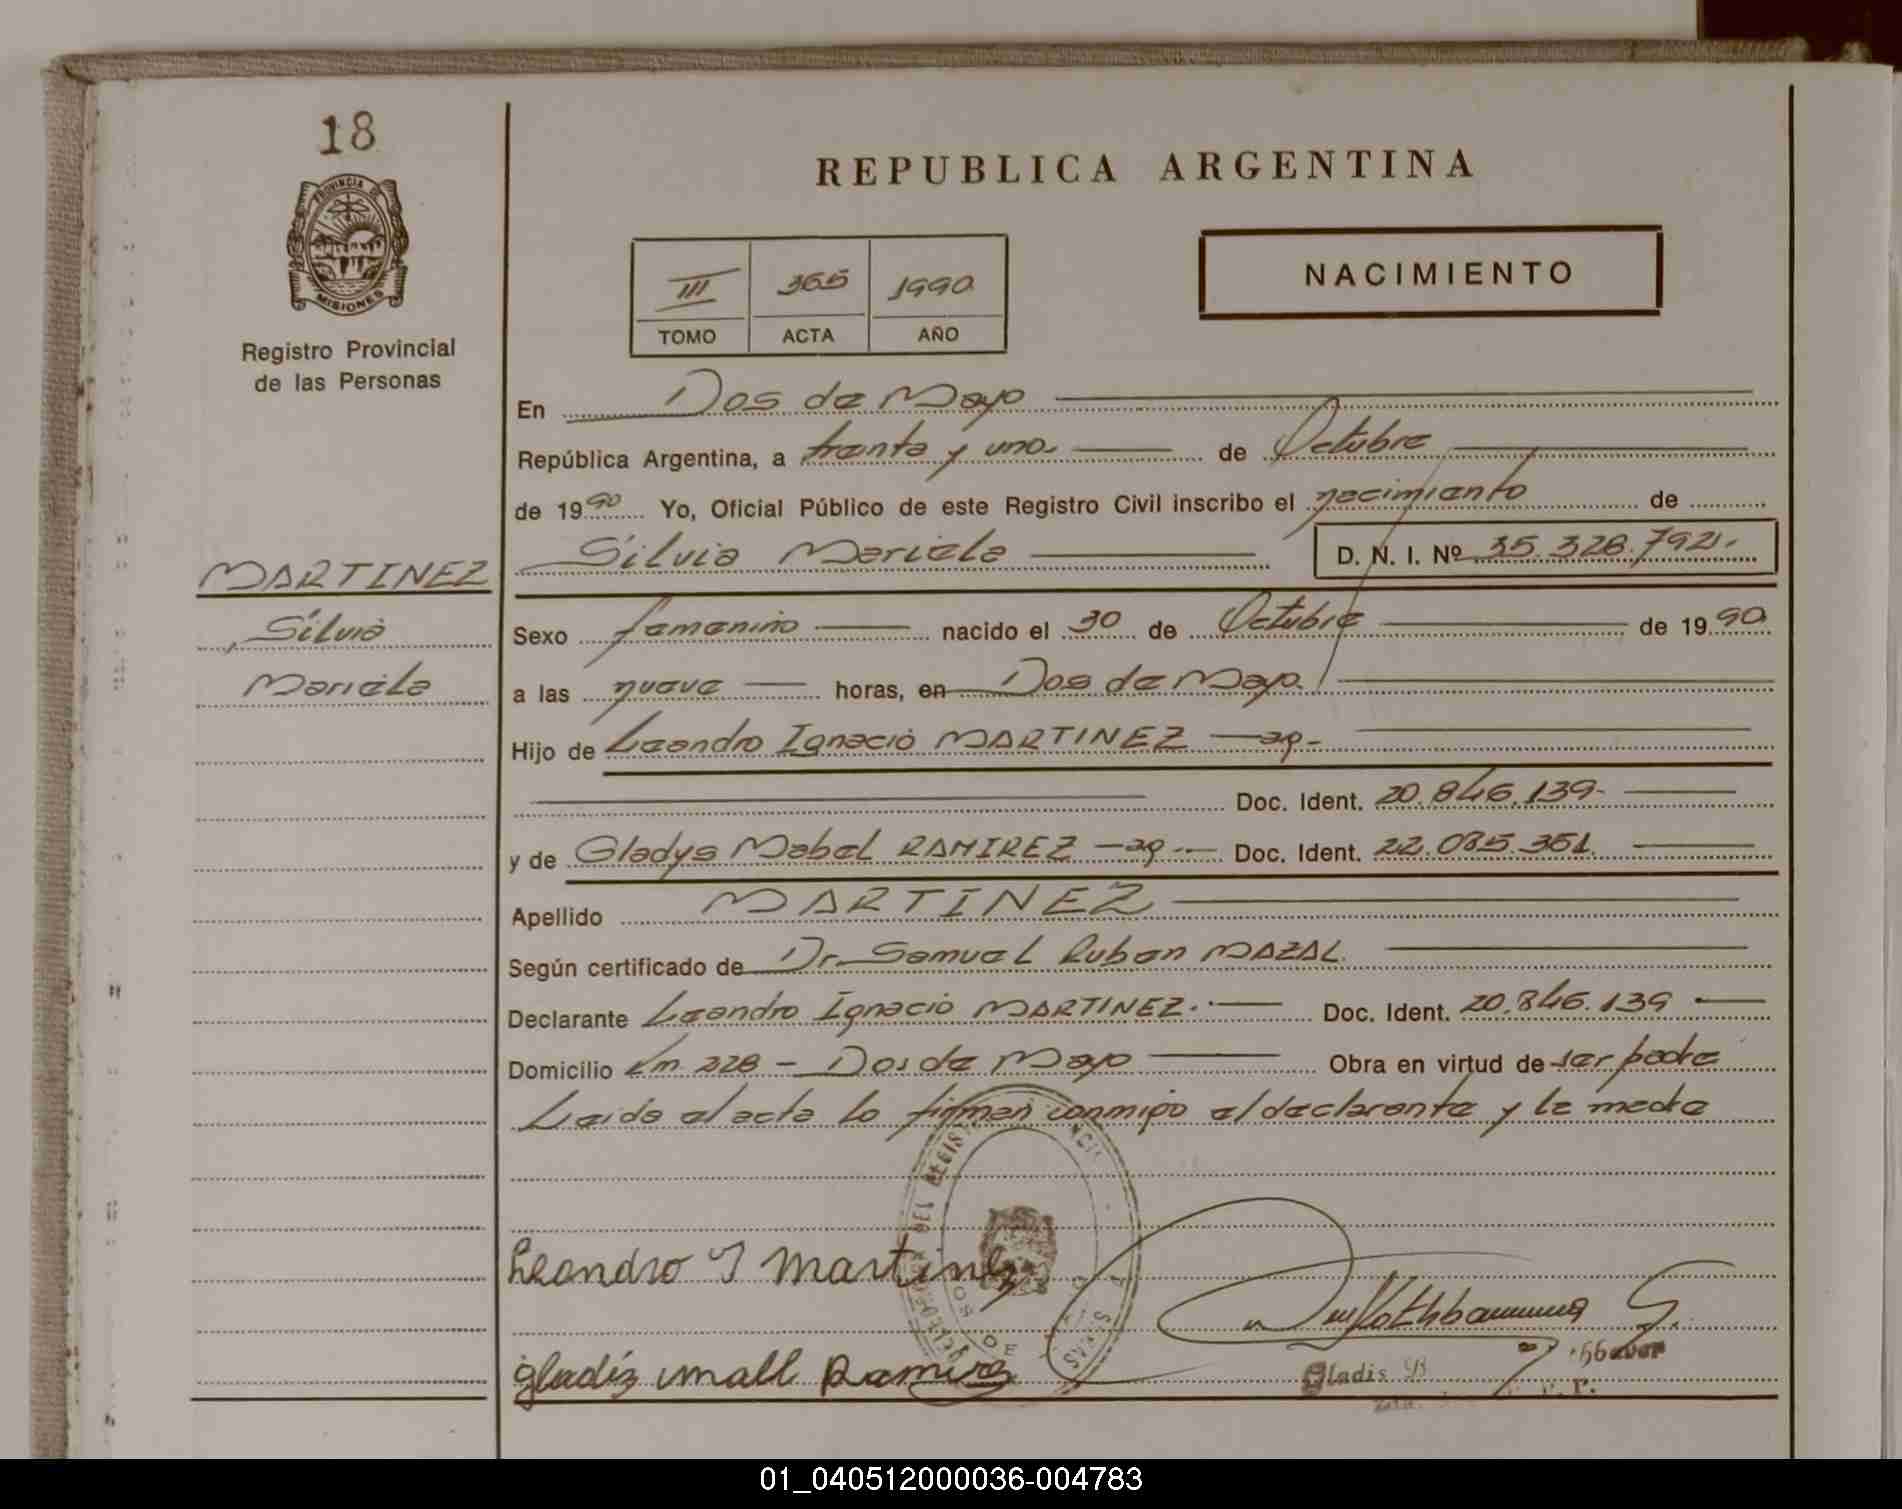 18
PROVINCIA DE
MISIONES
Registro Provincial
de las Personas
MARTINEZ
Silvia
Mariela
REPUBLICA ARGENTINA
III 365 1990
TOMO ACTA AÑO
NACIMIENTO
En Dos de Mayo
República Argentina, a treinta y uno. de Octubre
de 1990 Yo, Oficial Público de este Registro Civil inscribo el nacimiento de
Silvia Mariela D. N. I. Nº 35.328.792.
Sexo femenino nacido el 30 de Octubre de 1990
a las nueve horas, en Dos de Mayo.
Hijo de Leandro Ignacio MARTINEZ
Doc. Ident. 20.846.139-
y de Gladys Mabel RAMIREZ Doc. Ident. 22.085.351.
Apellido MARTINEZ
Según certificado de Dr. Samuel Ruben MAZAL.
Declarante Leandro Ignacio MARTINEZ. Doc. Ident. 20.846.139
Domicilio Km 228 - Dos de Mayo Obra en virtud de ser padre
Leida el acta lo firman conmigo el declarante y la madre
DEL REGISTRO
Leandro I Martinez
gladiz Ramirez
Gladis B
01_040512000036-004783